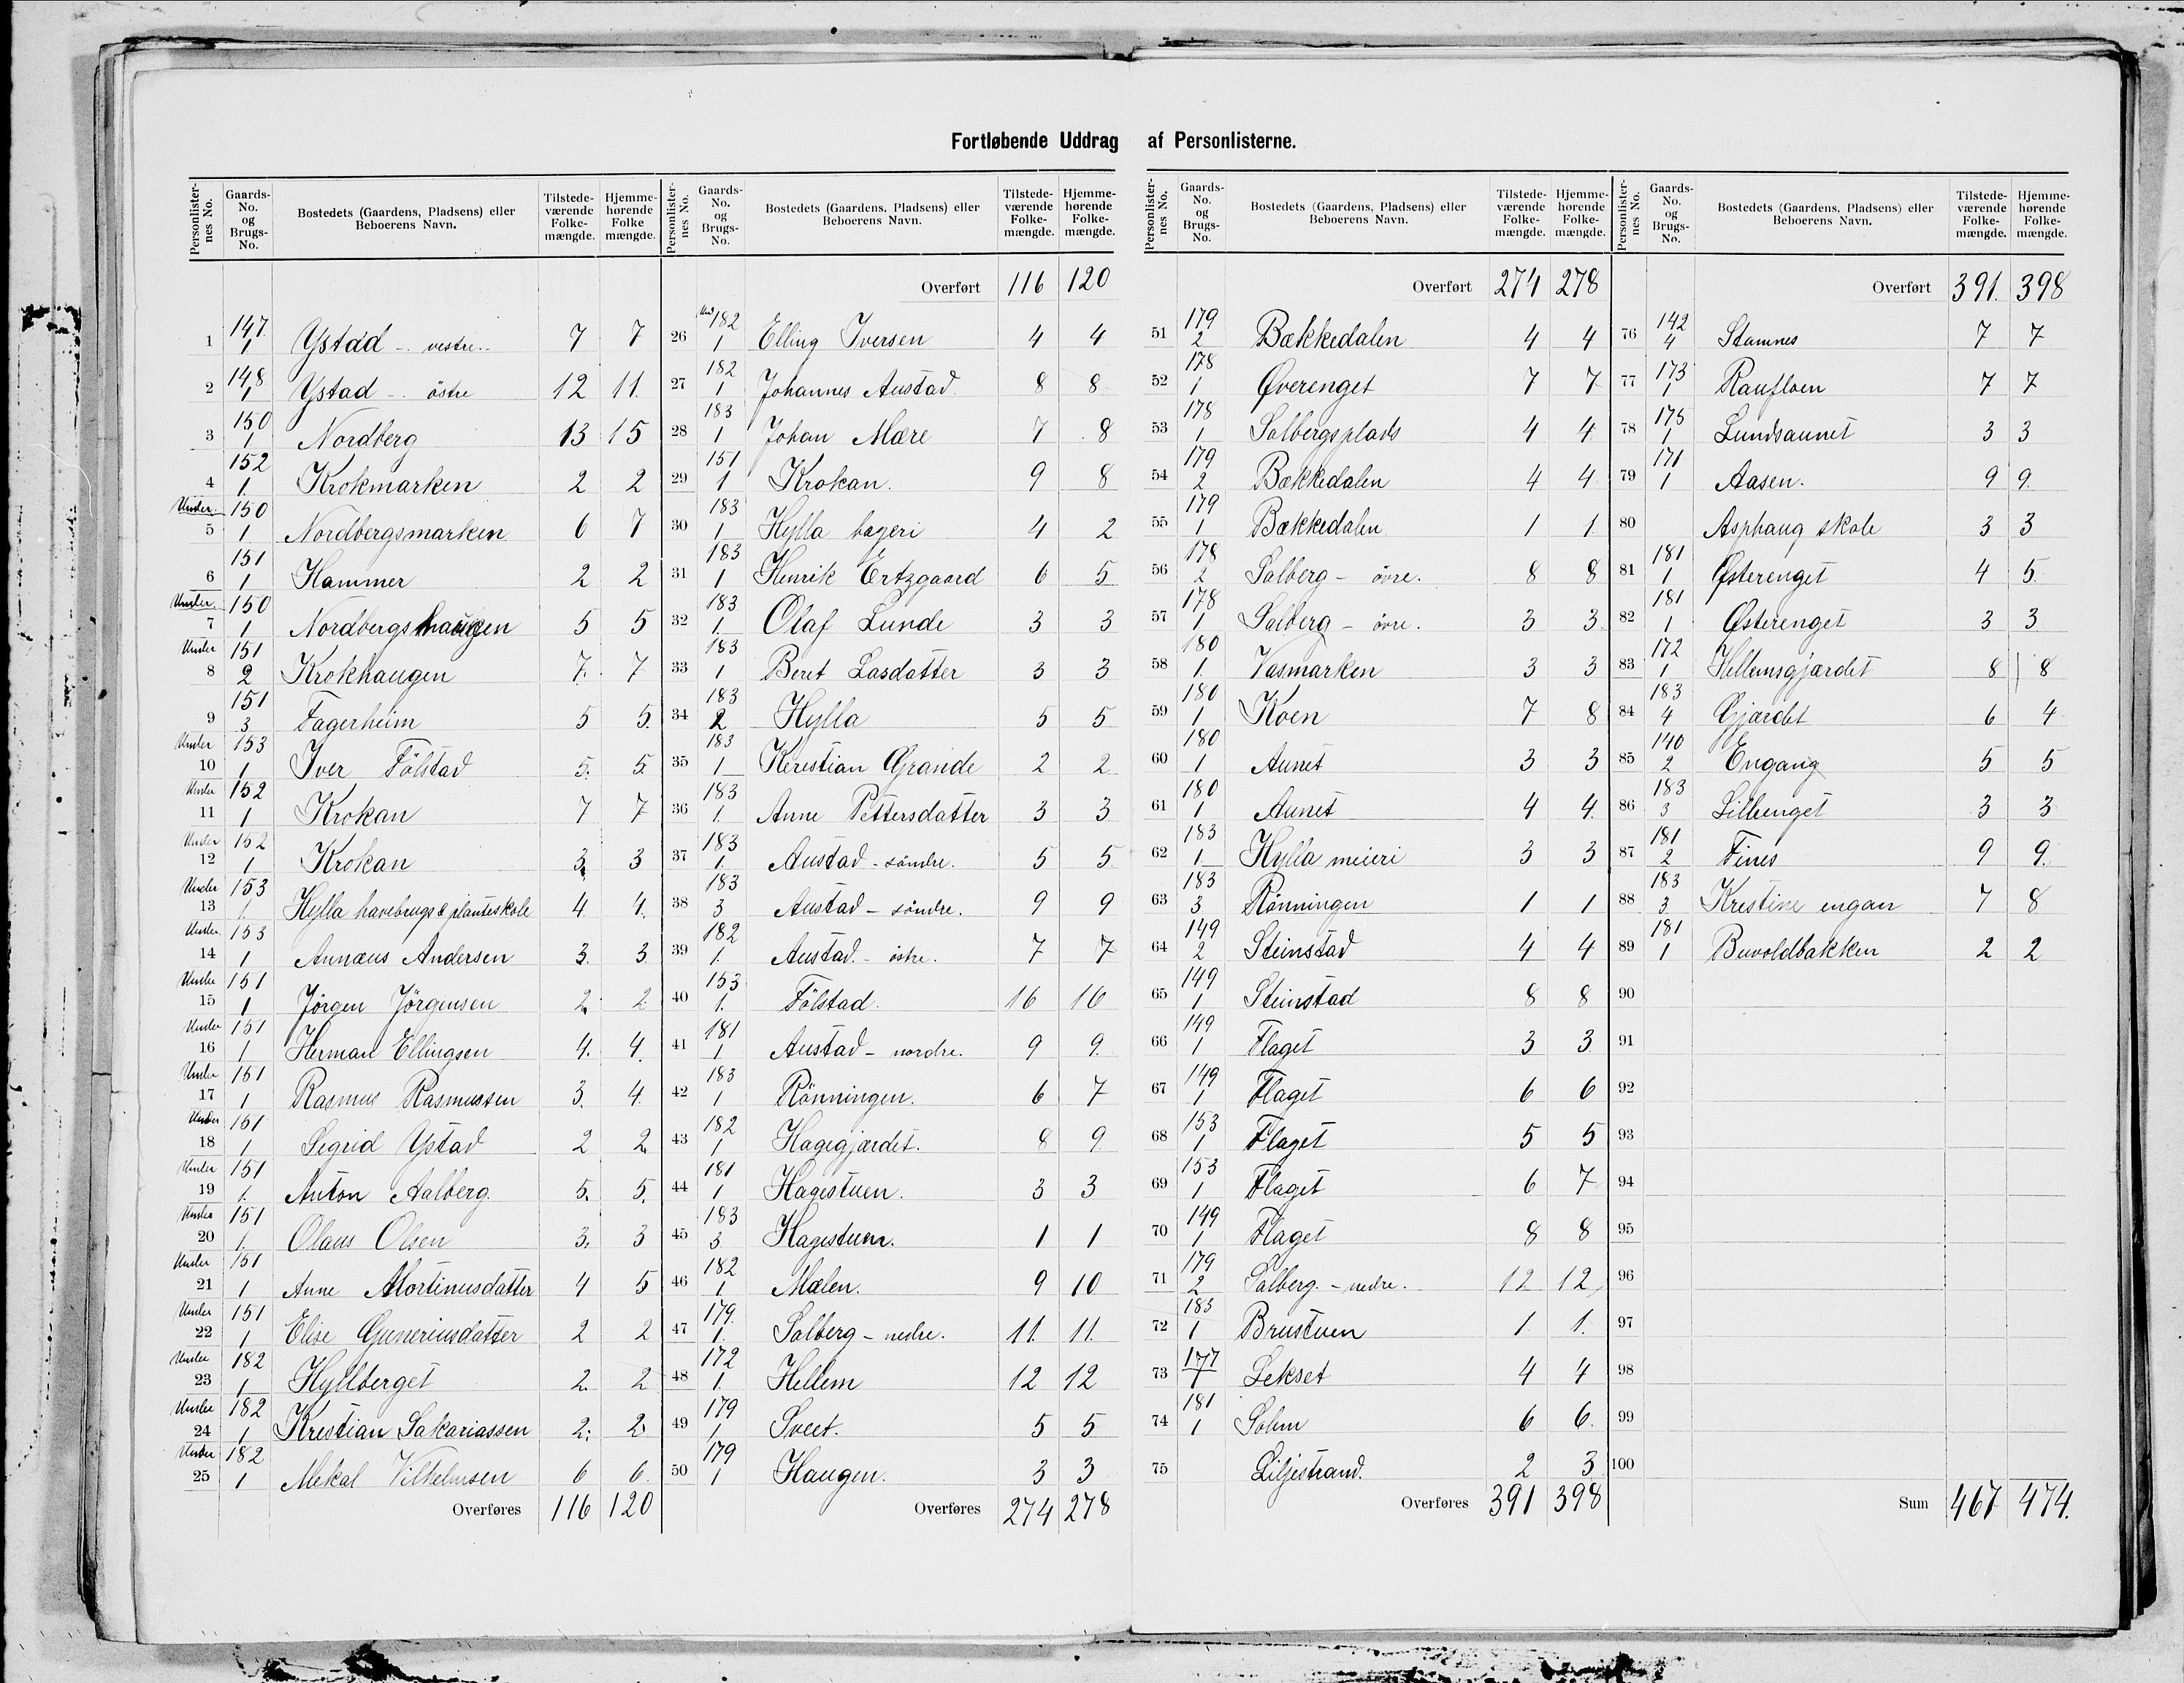 Fortløbende Uddrag af Personlisterne.
Personlister- nes No. Gaards- No. og Brugs- No. Bostedets (Gaardens, Pladsens) eller Beboerens Navn. Tilstede- værende Folke- mængde. Hjemme- hørende Folke mængde.
1 147/1 Ystad - vestre. 7 7
2 148/1 Ystad - östre 12 11.
3 150/1 Nordberg 13 15
4 152/1. Krokmarken 2 2
Under 5 150/1 Nordbergsmarken 6 7
6 151/1 Hammer 2 2
Under 7 150/1 Nordbergshaugen 5 5
Under 8 151/2 Krokhaugen 7. 7
9 151/3 Fagerheim 5 5.
Under 10 153/1 Iver Fölstad 5. 5.
Under 11 152/1 Krokan 7 7
Under 12 152/1 Krokan 3. 3
Under 13 153/1. Hylla havebrugs & planteskole 4. 4.
Under 14 153/1 Annæus Andersen 3. 3
Under 15 151/1 Jörgen Jörgensen 2. 2
Under 16 151/1 Herman Ellingsen 4. 4.
Under 17 151/1 Rasmus Rasmussen 3. 4.
Under 18 151/1 Segrid Ystad 2 2.
Under 19 151/1. Anton Aalberg 5. 5.
Under 20 151/1. Olaus Olsen 3. 3
Under 21 151/1 Anne Mortinusdatter 4 5
Under 22 151/1 Elise Guneriusdatter 2 2
Under 23 182/1 Hyllberget 2. 2
Under 24 182/1 Krestian Sakariassen 2. 2.
Under 25 182/1 Mekal Vilhelmsen 6 6.
Overføres 116 120
Personlister- nes No. Gaards- No. og Brugs- No. Bostedets (Gaardens, Pladsens) eller Beboerens Navn. Tilstede- værende Folke- mængde. Hjemme- hørende Folke- mængde.
Overført 116 120
26 Und 182/1 Elling Iversen 4 4
27 182/1 Johannes Austad 8 8
28 183/1 Johan Mære 7 8
29 151/1 Krokan. 9 8
30 183/1 Hylla bageri 4 2
31 183/1 Henrik Ertzgaard 6 5
32 183/1. Olaf Lunde 3 3
33 183/1 Beret Lasdatter 3 3
34 183/2 Hylla 5 5
35 183/1 Kerestian Grande 2 2
36 183/1. Anne Pettersdatter 3 3
37 183/1. Austad - söndre. 5 5
38 183/3 Austad - söndre. 9 9
39 182/1. Austad - östre. 7 7
40 153/1. Fölstad. 16 16
41 181/1 Austad - nordre. 9 9.
42 183/1 Rönningen. 6 7
43 182/1 Hagegjærdet. 8 9
44 181/1 Hagestuen. 3 3
45 183/3 Hagestuen. 1 1
46 182/1 Mælen. 9 10
47 179/1. Salberg - nedre. 11. 11.
48 172/1. Hellem 12 12
49 179/1 Sveet. 5 5
50 179/1 Haugen. 3 3
Overføres 274 278
Personlister- nes No. Gaards- No. og Brugs- No. Bostedets (Gaardens, Pladsens) eller Beboerens Navn. Tilstede- værende Folke- mængde. Hjemme- hørende Folke- mængde.
Overført 274 278
51 179/2 Bækkedalen 4 4
52 178/1 Øverenget 7 7
53 178/1 Salbergsplads 4 4
54 179/2 Bækkedalen 4 4
55 179/1 Bækkedalen 1 1
56 178/2 Salberg - övre. 8 8
57 178/1 Salberg - övre. 3 3
58 180/1. Vasmarken 3 3
59 180/1 Koen 7 8
60 180/1 Aunet 3 3
61 180/1 Aunet 4 4.
62 183/1 Hylla meieri 3 3
63 183/3 Rönningen 1 1
64 149/2 Steinstad 4 4
65 149/1 Steinstad 8 8
66 149/1 Flaget 3 3
67 149/1 Flaget 6 6
68 153/1 Flaget 5 5
69 153/1 Flaget 6 7
70 149/1 Flaget 8 8
71 179/2 Salberg - nedre. 12 12
72 183/1 Brustuen 1. 1.
73 177/1 Lekset 4 4
74 181/1 Solem 6 6.
75 Liljestrand. 2 3
Overføres 391 398
Personlister- nes No. Gaards- No. og Brugs- No. Bostedets (Gaardens, Pladsens) eller Beboerens Navn. Tilstede- værende Folke- mængde. Hjemme- hørende Folke- mængde.
Overført 391. 398
76 142/4 Stamnes 7 7
77 173/1 Raufloen 7 7
78 175/1 Lundsaunet 3 3
79 171/1 Aasen. 9 9.
80 Asphaug skole 3 3
81 181/1 Østerenget 4 5.
82 181/1 Østerenget 3 3
83 172/1 Hellemsgjærdet 8 8
84 183/4 Gjærdet 6 4
85 140/2 Engang 5 5
86 183/3 Lilleenget 3 3
87 181/2 Fines 9 9.
88 183/3 Krestine engan 7 8
89 181/1 Buvoldbakken 2 2
90
91
92
93
94
95
96
97
98
99
100
Sum 467 474.